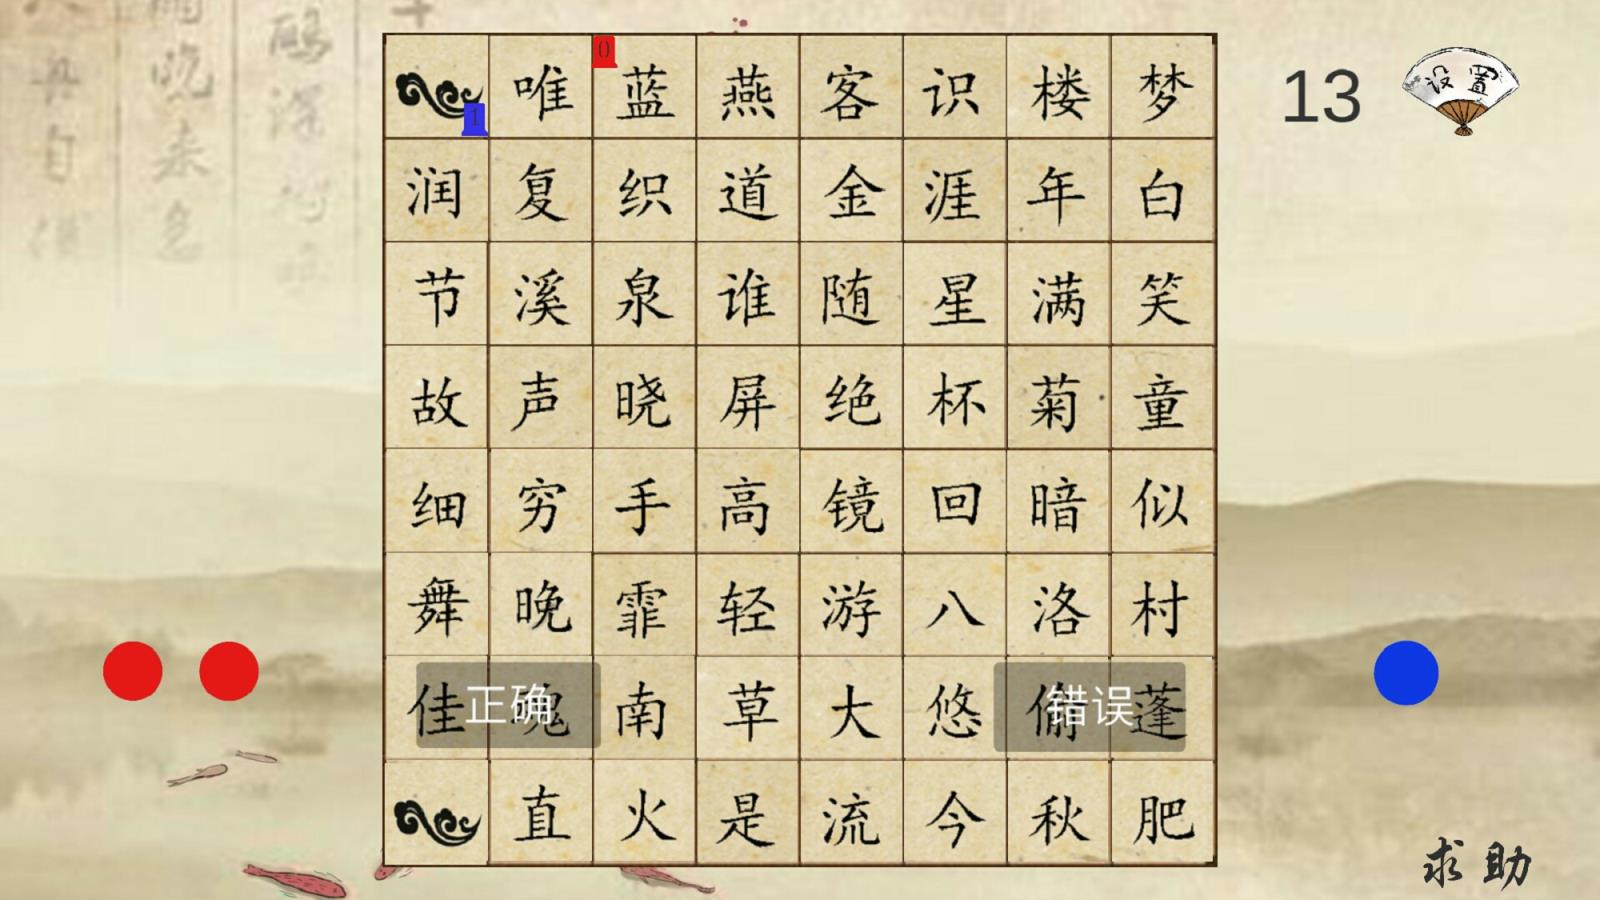 唯 蓝 燕 客 识 楼 梦
0
1
13
设置
润 复 织 道 金 涯 年 白
节 溪 泉 谁 随 星 满 笑
故 声 晓 屏 绝 杯 菊 童
细 穷 手 高 镜 回 暗 似
舞 晚 霏 轻 游 八 洛 村
佳 魂 南 草 大 悠 偷 蓬
正确
错误
直 火 是 流 今 秋 肥
求助